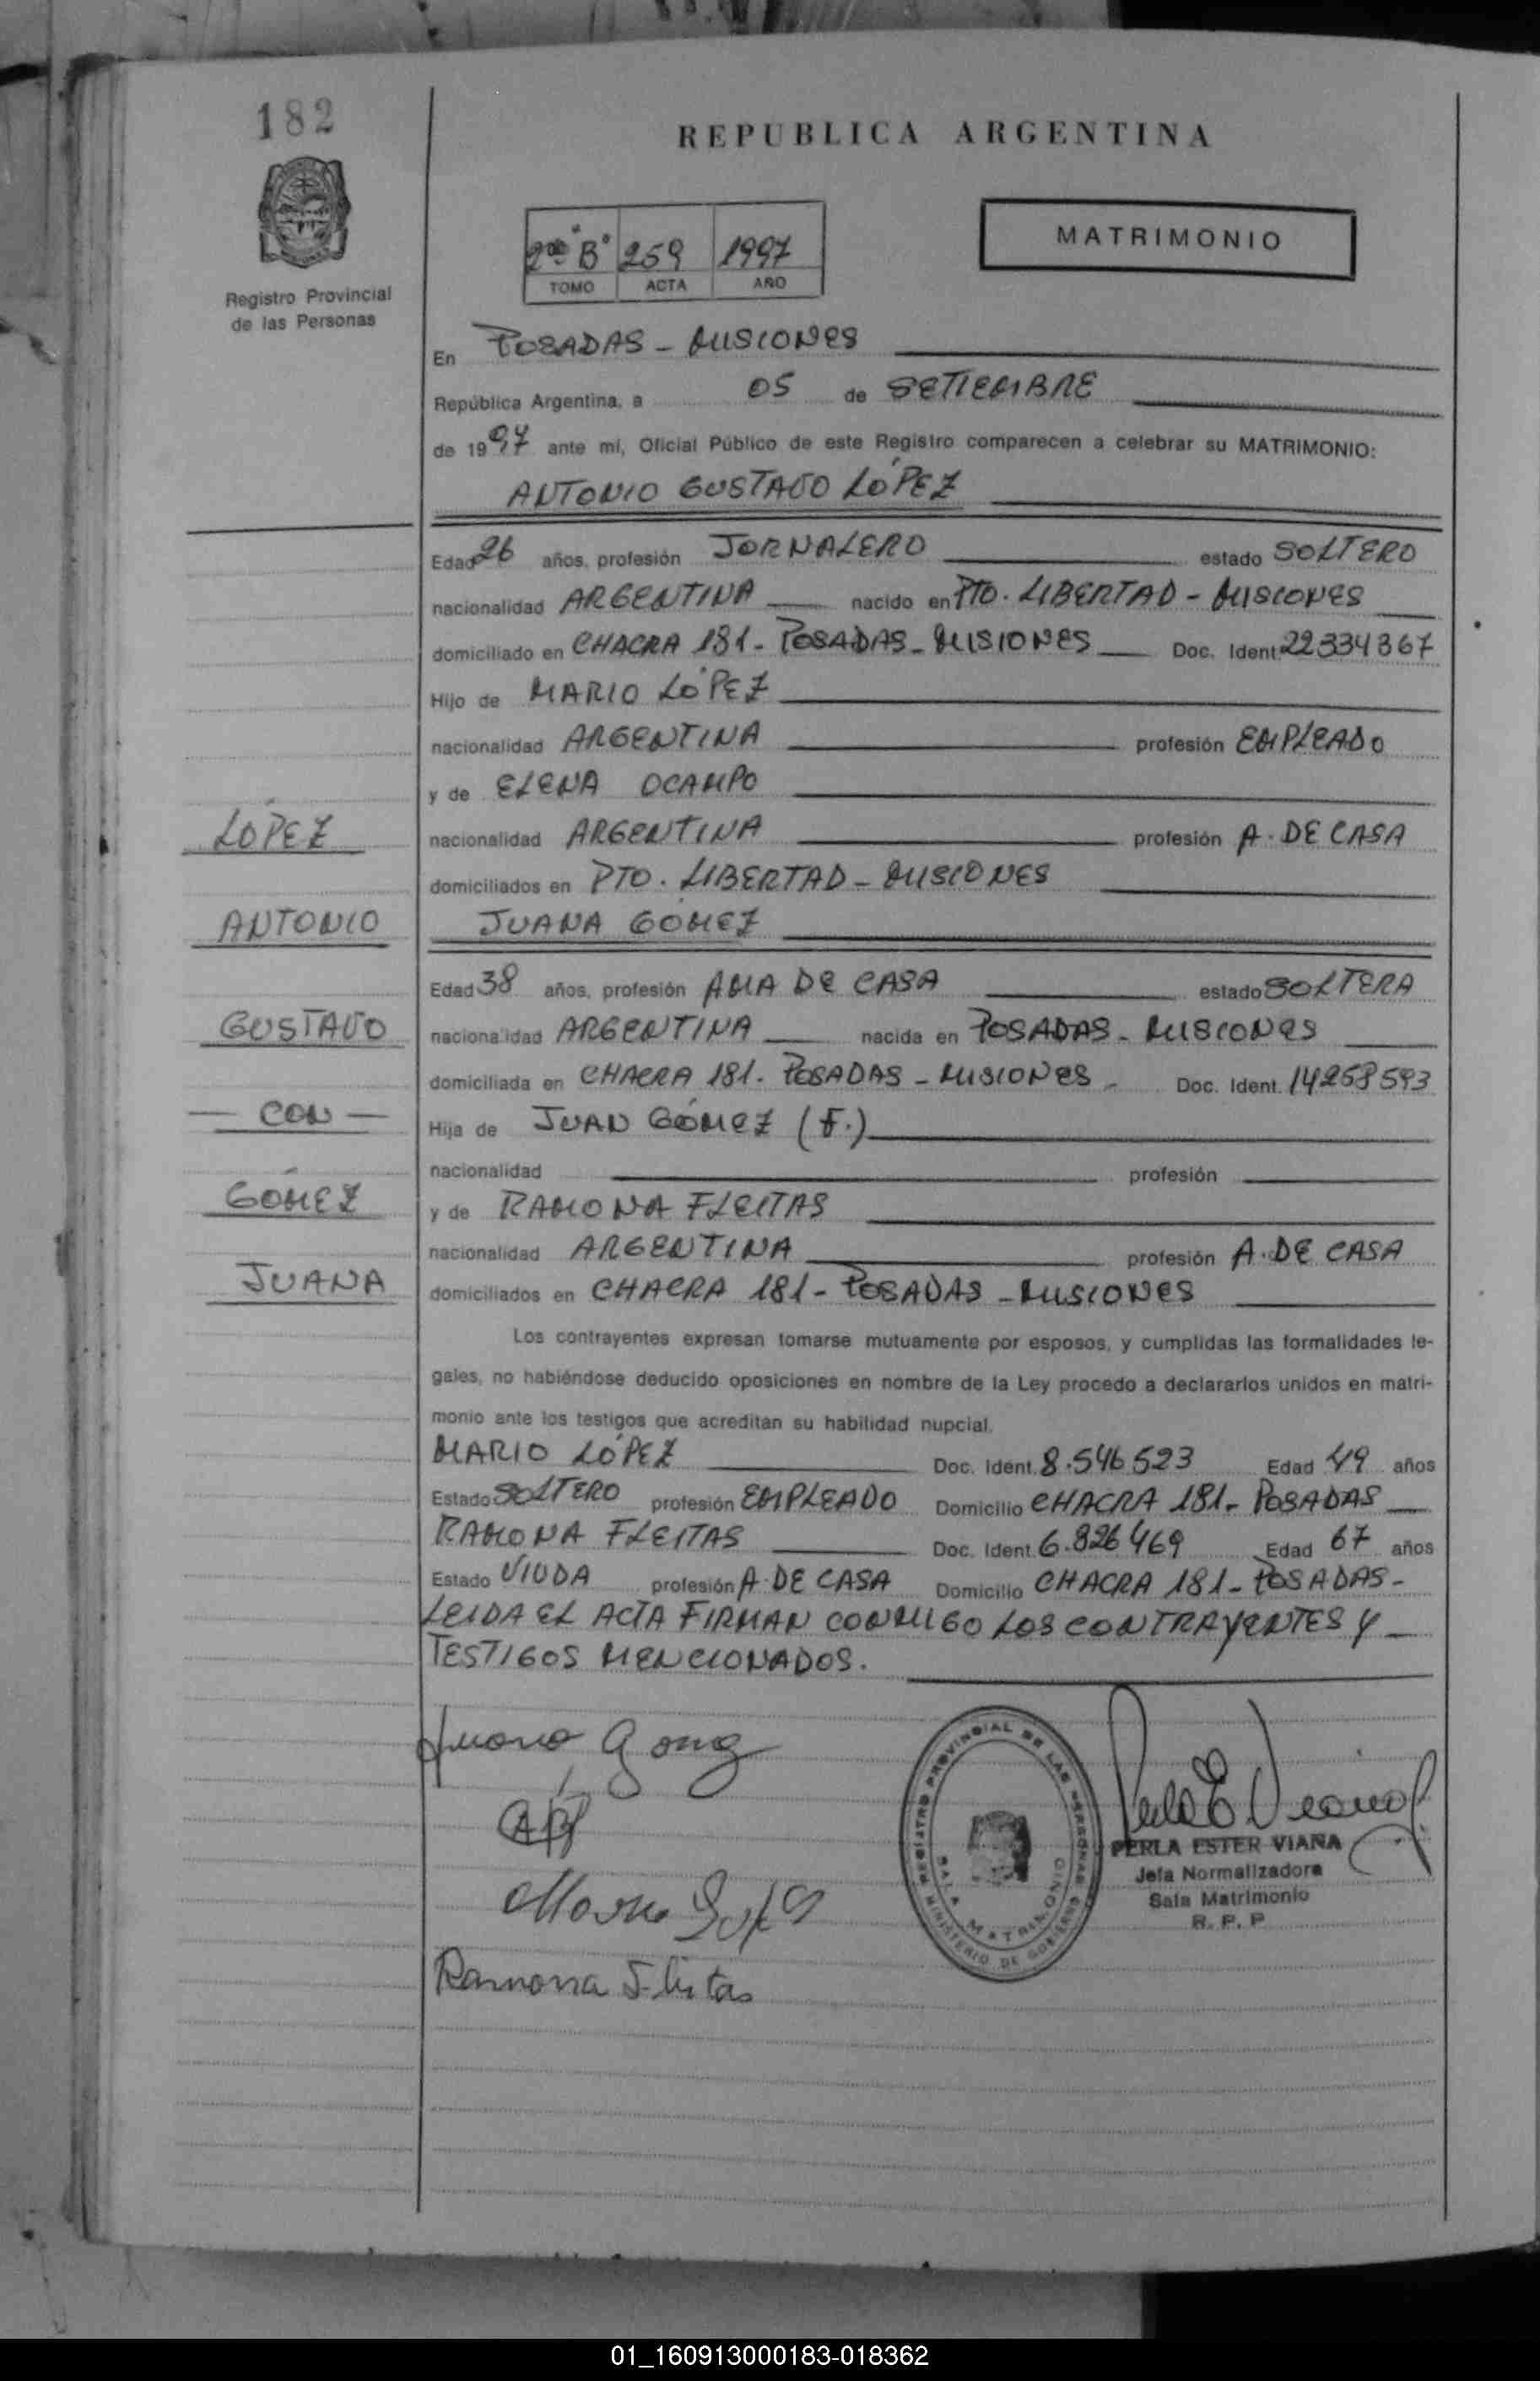 182
REPUBLICA ARGENTINA
Registro Provincial
de las Personas
2do "B" 259 1997
TOMO ACTA AÑO
MATRIMONIO
En POSADAS - MISIONES
República Argentina, a 05 de SETIEMBRE
de 1997 ante mí, Oficial Público de este Registro comparecen a celebrar su MATRIMONIO:
ANTONIO GUSTAVO LÓPEZ
Edad 26 años, profesión JORNALERO estado SOLTERO
nacionalidad ARGENTINA nacido en PTO. LIBERTAD - MISIONES
domiciliado en CHACRA 181 - POSADAS - MISIONES Doc. Ident. 22334367
Hijo de MARIO LÓPEZ
nacionalidad ARGENTINA profesión EMPLEADO
y de ELENA OCAMPO
nacionalidad ARGENTINA profesión A. DE CASA
domiciliados en PTO. LIBERTAD - MISIONES
JUANA GÓMEZ
Edad 38 años, profesión AMA DE CASA estado SOLTERA
nacionalidad ARGENTINA nacida en POSADAS - MISIONES
domiciliada en CHACRA 181 - POSADAS - MISIONES - Doc. Ident. 14258593
Hija de JUAN GÓMEZ (F.)
nacionalidad profesión
y de RAMONA FLEITAS
nacionalidad ARGENTINA profesión A. DE CASA
domiciliados en CHACRA 181 - POSADAS - MISIONES
LÓPEZ
ANTONIO
GUSTAVO
— CON —
GÓMEZ
JUANA
Los contrayentes expresan tomarse mutuamente por esposos, y cumplidas las formalidades le-
gales, no habiéndose deducido oposiciones en nombre de la Ley procedo a declararlos unidos en matri-
monio ante los testigos que acreditan su habilidad nupcial.
MARIO LÓPEZ Doc. Ident. 8.546523 Edad 49 años
Estado SOLTERO profesión EMPLEADO Domicilio CHACRA 181 - POSADAS
RAMONA FLEITAS Doc. Ident. 6.826469 Edad 67 años
Estado VIUDA profesión A. DE CASA Domicilio CHACRA 181 - POSADAS -
LEIDA EL ACTA FIRMAN CONMIGO LOS CONTRAYENTES Y
TESTIGOS MENCIONADOS.
Juana Gomez
Ramona Fleitas
REGISTRO PROVINCIAL DE LAS PERSONAS
SALA MATRIMONIO
MINISTERIO DE GOBIERNO
PERLA ESTER VIANA
Jefa Normalizadora
Sala Matrimonio
R. P. P
01_160913000183-018362